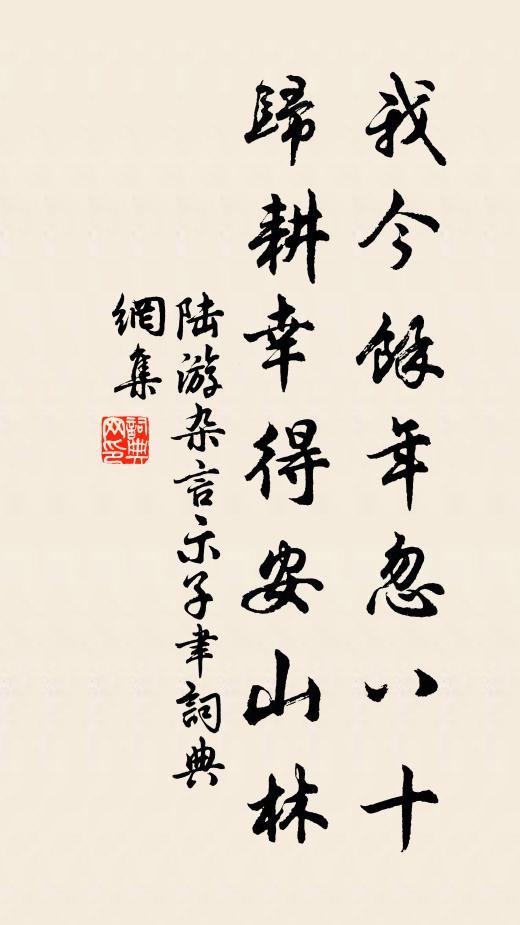 我今餘年忽八十
歸耕幸得安山林
陆游杂言示子聿詞典
網集
詞典
网印